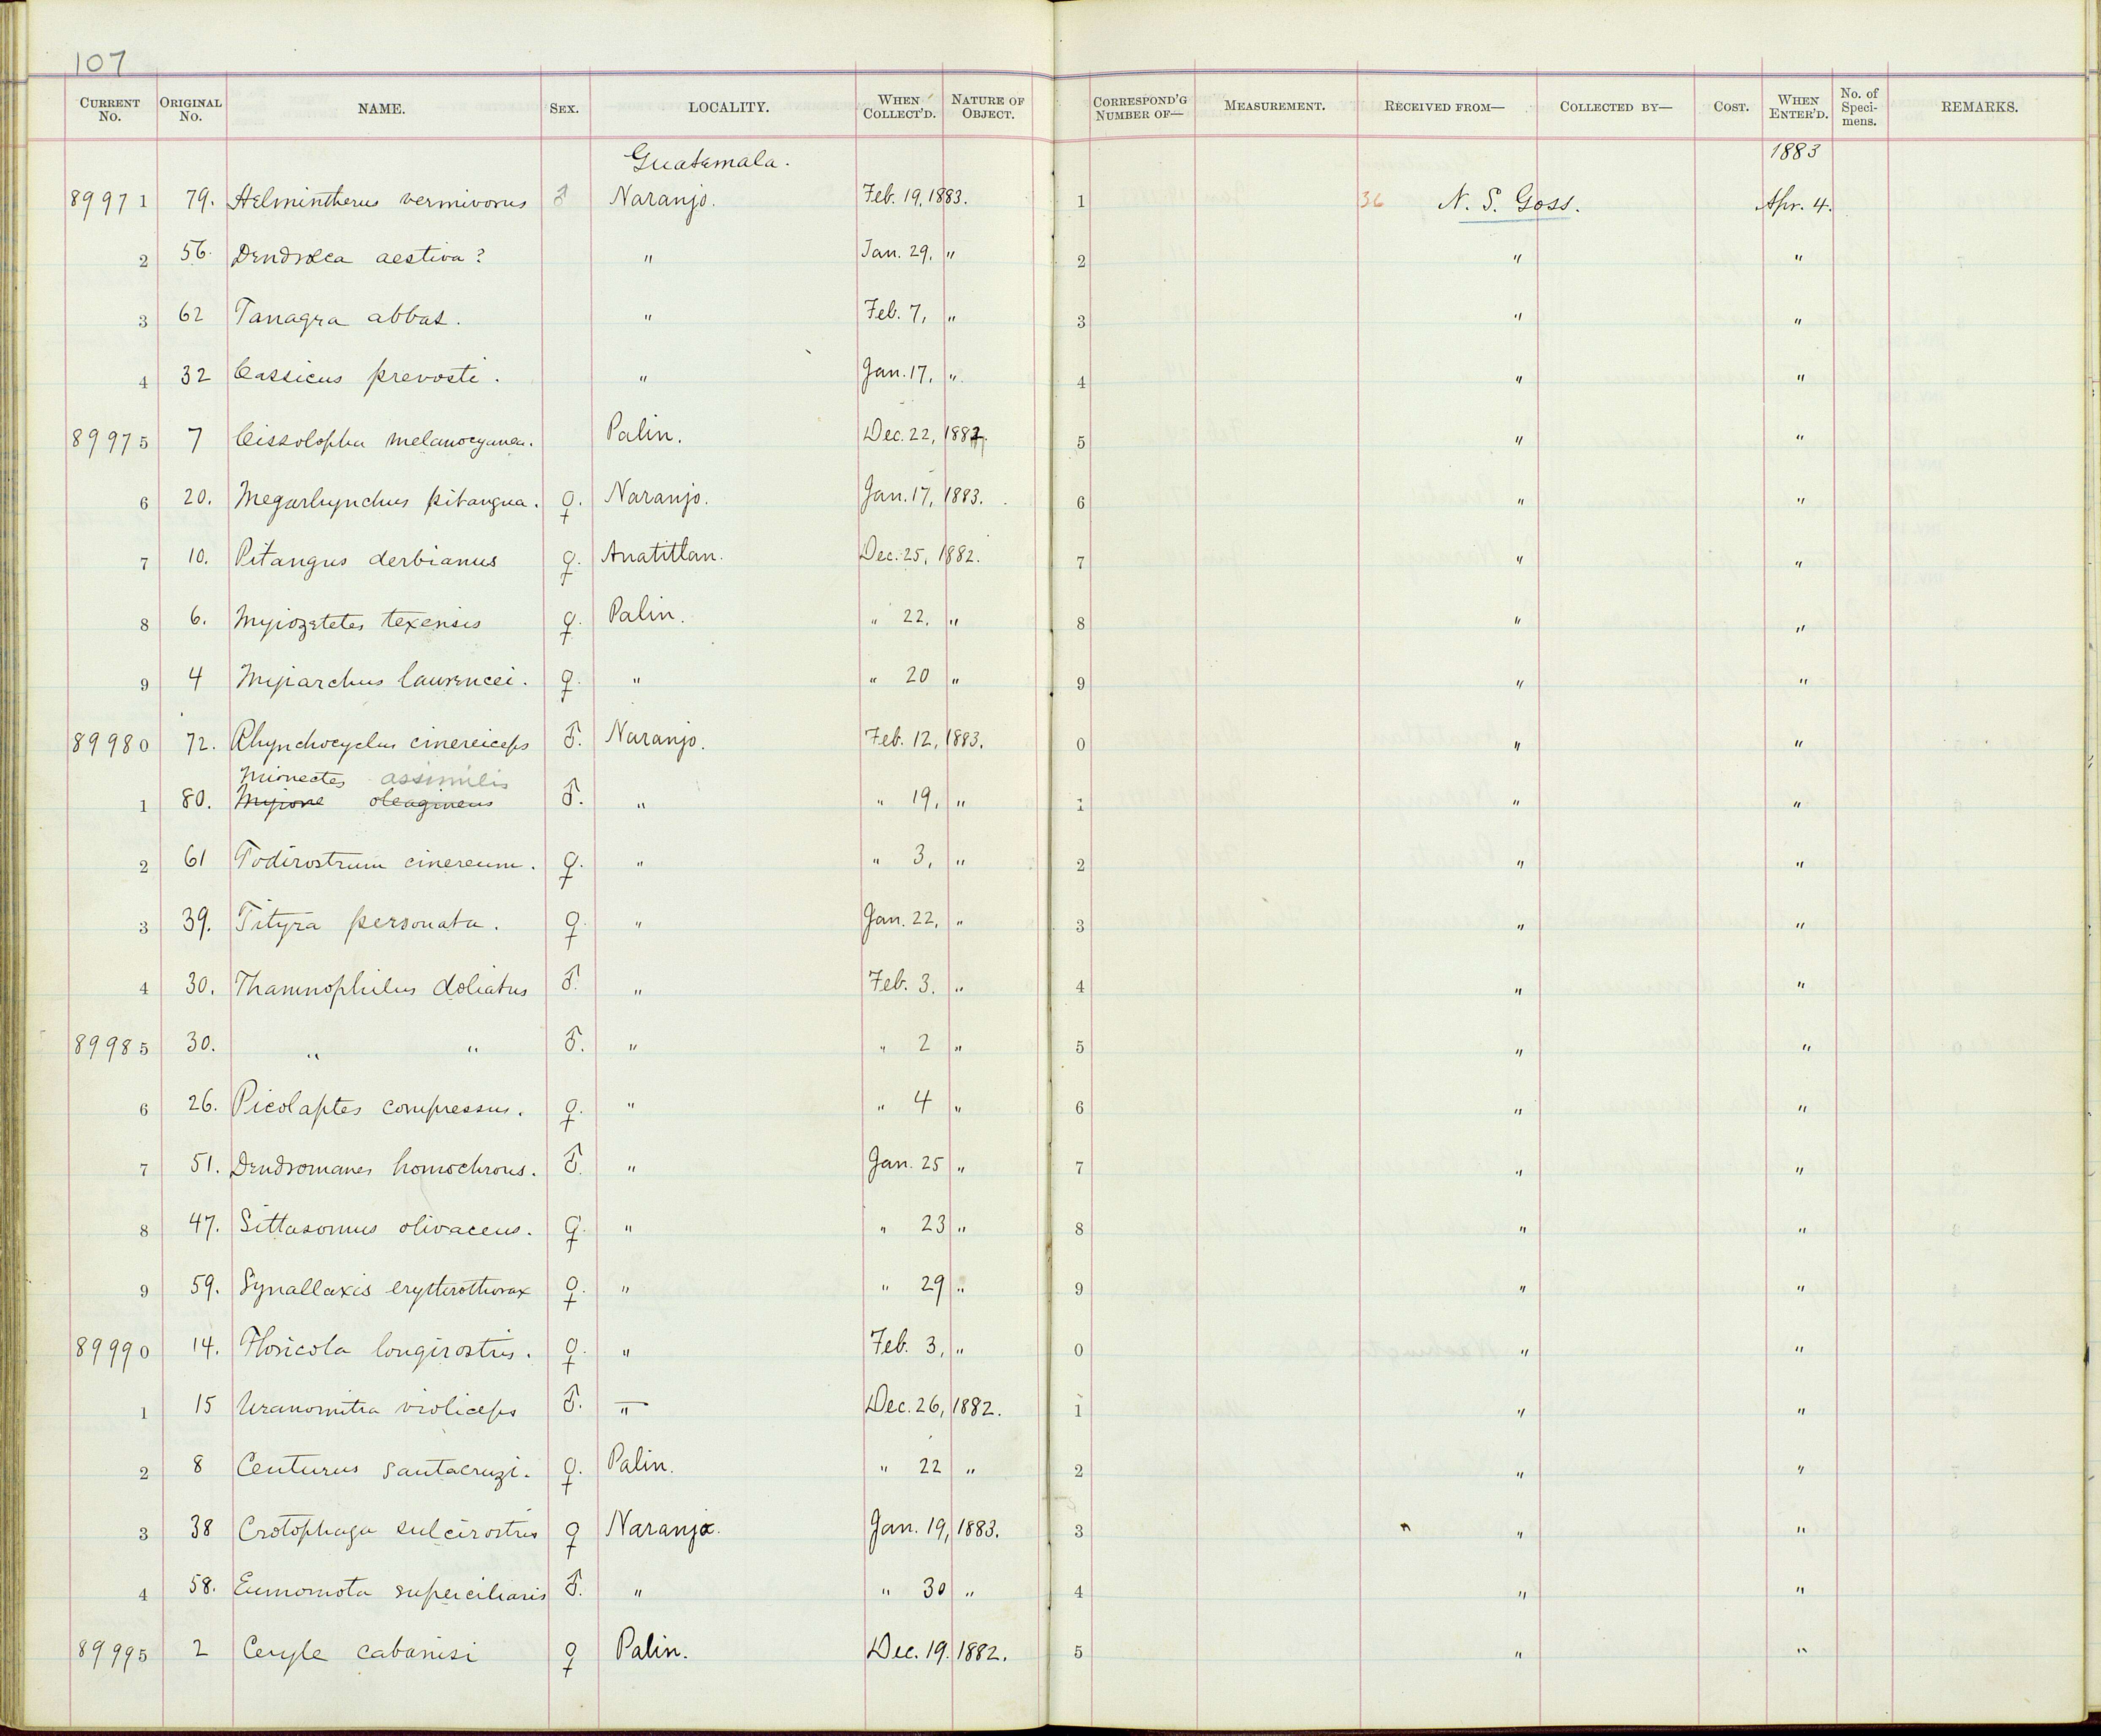 107
CURRENT No. ORIGINAL No. NAME. SEX. LOCALITY. WHEN COLLECT'D. NATURE OF OBJECT. CORRESPOND'G NUMBER OF— MEASUREMENT. RECEIVED FROM— COLLECTED BY— COST. WHEN ENTER'D. No. of Speci- mens. REMARKS.
Guatemala. 1883
89971 79. Helmintherus vermivorus ♂ Naranjo. Feb. 19, 1883. 1 36 N. S. Goss. Apr. 4.
2 56. Dendroeca aestiva? " Jan. 29, " 2 " "
3 62 Tanagra abbas. " Feb. 7, " 3 " "
4 32 Cassicus prevosti. " Jan. 17, " 4 " "
89975 7 Cissolopha melanocyanea. Palin. Dec. 22, 1882. 5 " "
6 20. Megarhynchus pitangua. ♀. Naranjo. Jan. 17, 1883. 6 " "
7 10. Pitangus derbianus ♀. Anatitlan. Dec. 25, 1882. 7 " "
8 6. Myiozetetes texensis ♀. Palin. " 22, " 8 " "
9 4 Myiarchus lawrencei. ♀. " " 20 " 9 " "
89980 72. Rhynchocyclus cinereiceps ♂. Naranjo. Feb. 12, 1883. 0 " "
Mionectes assimilis
1 80. Myione oleagineus ♂. " " 19, " 1 " "
2 61 Todirostrum cinereum. ♀. " " 3, " 2 " "
3 39. Tityra personata. ♀. " Jan. 22, " 3 " "
4 30. Thamnophilus doliatus ♂. " Feb. 3. " 4 " "
89985 30. " " ♂. " " 2 " 5 " "
6 26. Picolaptes compressus. ♀. " " 4 " 6 " "
7 51. Dendromanes homochrous. ♂. " Jan. 25 " 7 " "
8 47. Sittasomus olivaceus. ♀. " " 23 " 8 " "
9 59. Synallaxis erythrothorax ♀. " " 29 " 9 " "
89990 14. Floricola longirostris. ♀. " Feb. 3, " 0 " "
1 15 Uranomitra violiceps ♂. " Dec. 26, 1882. 1 " "
2 8 Centurus santacruzi. ♀. Palin. " 22 " 2 " "
3 38 Crotophaga sulcirostris ♀ Naranjo. Jan. 19, 1883. 3 " "
4 58. Eumomota superciliaris ♂. " " 30 " 4 " "
89995 2 Ceryle cabanisi ♀ Palin. Dec. 19. 1882. 5 " "